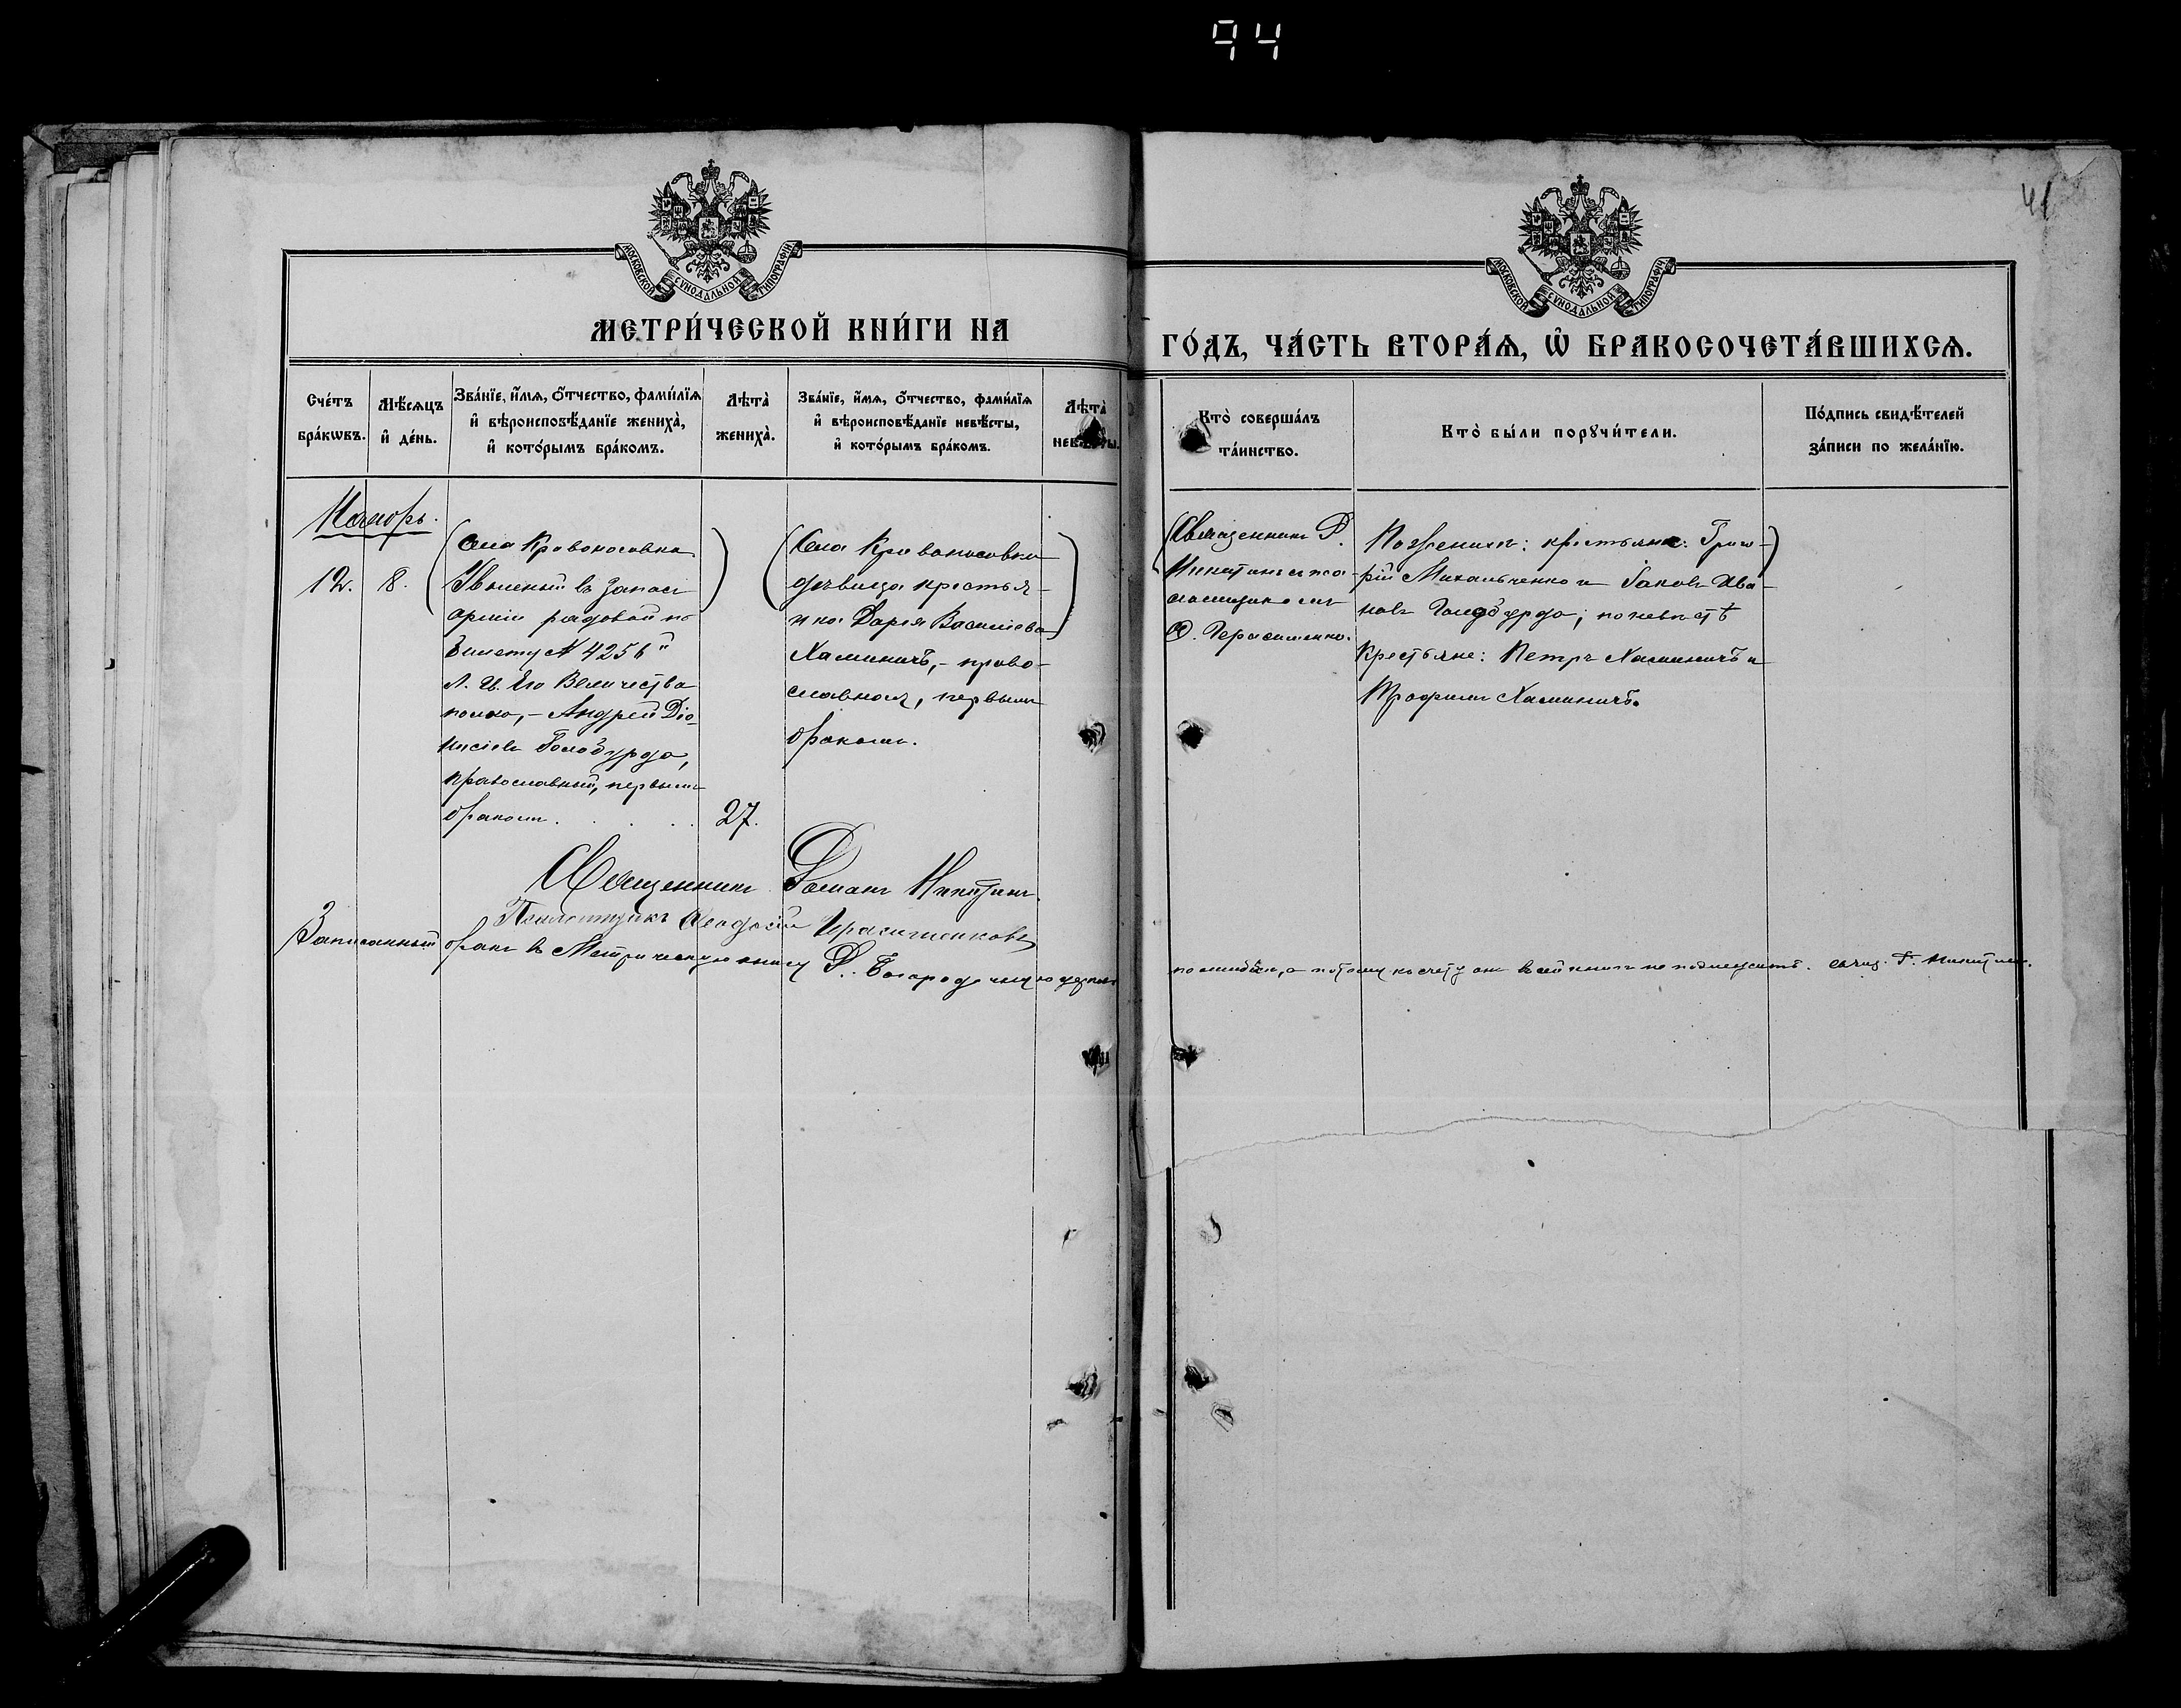 94
41
МОСКОВСКОЙ СѴНОДАЛЬНОЙ ТИПОГРАФІИ
МЕТРИ́ЧЕСКОЙ КНИ́ГИ НА
МОСКОВСКОЙ СѴНОДАЛЬНОЙ ТИПОГРАФІИ
ГО́ДЪ, ЧА́СТЬ ВТОРА́Ѧ, Ѡ҆ БРАКОСОЧЕТА́ВШИХСѦ.
Сче́тъ
бра́кѡвъ.
Мѣ́сѧцъ
и҆ де́нь.
Зва́нїе, и҆́мѧ, ѻ҆́тчество, фами́лїѧ
и҆ вѣроисповѣ́данїе жениха̀,
и҆ кото́рымъ бра́комъ.
Лѣта̀
жениха̀.
Зва́нїе, и҆́мѧ, ѻ҆́тчество, фами́лїѧ
и҆ вѣроисповѣ́данїе невѣ́сты,
и҆ кото́рымъ бра́комъ.
Лѣта̀
невѣ́сты.
Кто̀ соверша́лъ
та́инство.
Кто̀ бы́ли порꙋчи́тели.
По́дпись свидѣ́телей
за́писи по жела́нїю.
Ноябрь.
12.
8.
Села Кровоносовка
Уволеный въ запасъ
арміи рядовой по
билету № 4256
Л. Гв. Его Величества
полка, – Андрей Діо-
нисіевъ Голобурда,
православный, первымъ
бракомъ.
27.
Села Кровоносовки
дѣвица крестья-
нка Дарія Василіева
Хаминичъ, – право-
славная, первымъ
бракомъ.
Священникъ Р.
Никитинъ съ пса-
ломщикомъ
Ѳ. Герасименко.
По женихѣ: крестьяне: Григо-
рій Михальченко и Іаковъ Ива-
новъ Голобурда; по невѣстѣ
Крестьяне: Петръ Хаминичъ и
Трофимъ Хаминичъ.
Священникъ Романъ Никитинъ.
Псаломщикъ Ѳеодосій Герасименковъ
Записанный бракъ въ Метрическую книгу Р. Богородичную церкви
по ошибкѣ, а потому къ счету онъ въ сей книгѣ не подлежитъ. Свящ. Р. Никитинъ.